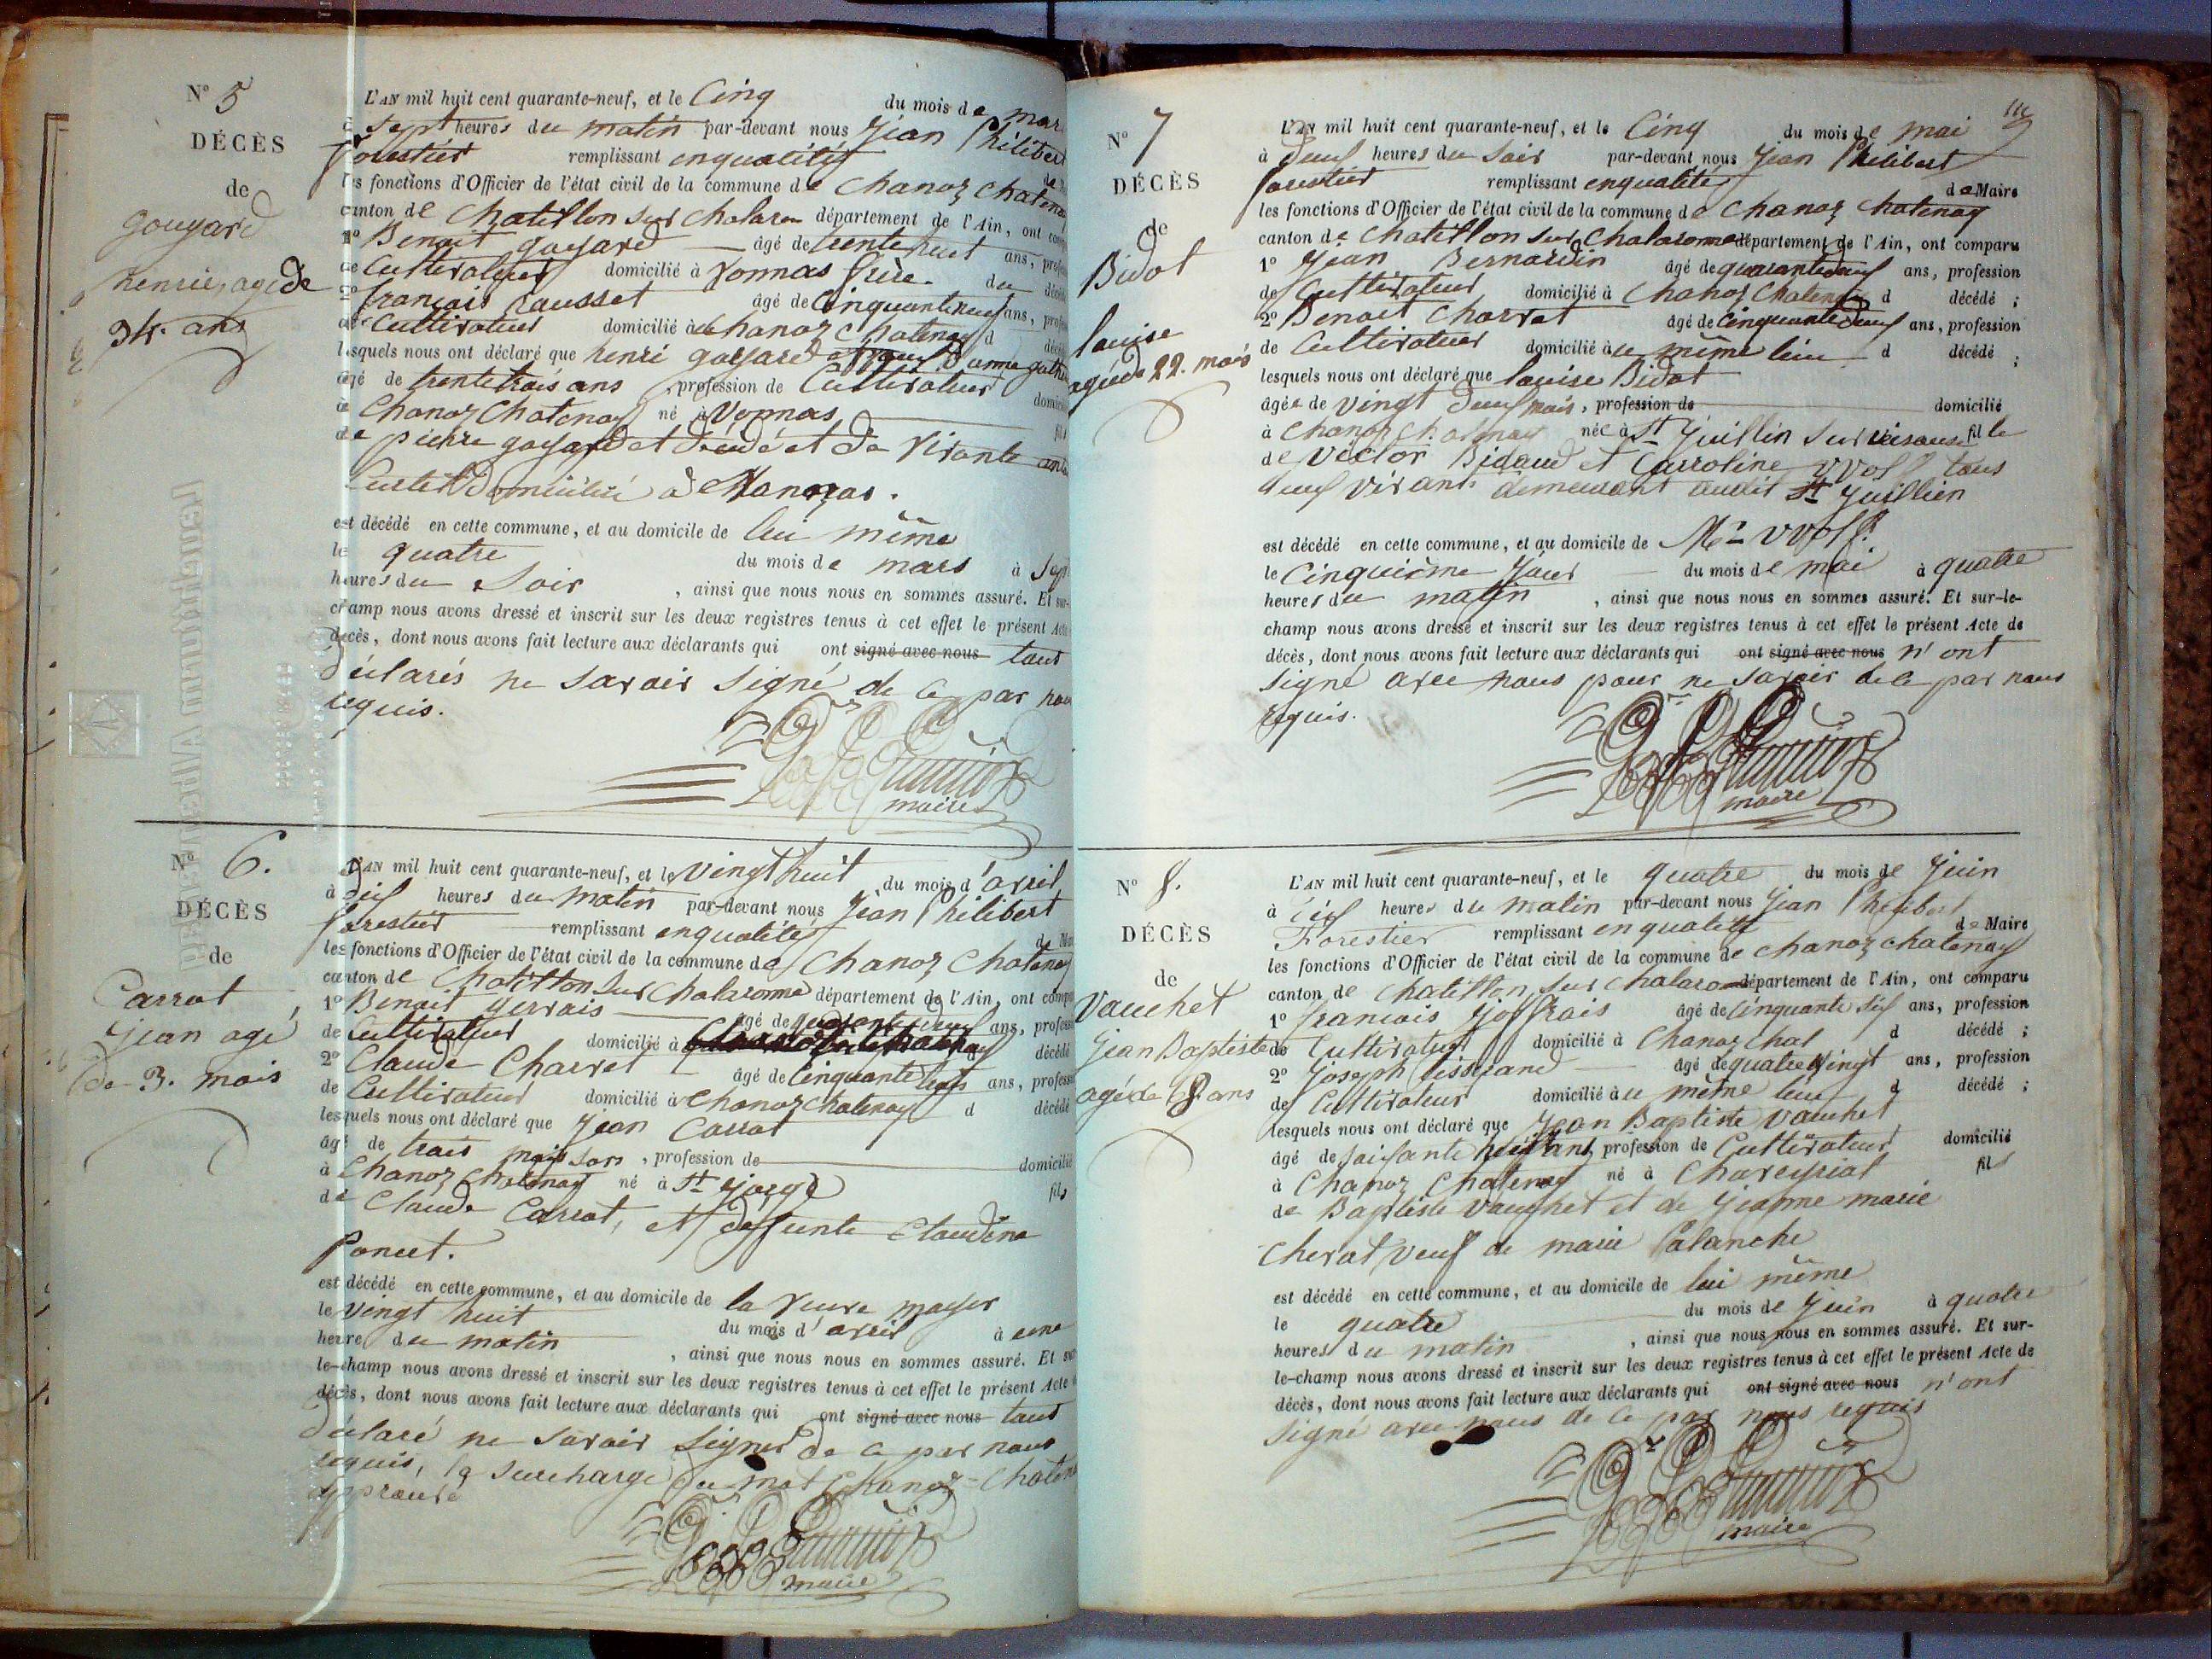 N° 5
DÉCÈS
de
gougard
henrie, agé de
34. ans
L'AN mil huit cent quarante-neuf, et le Cinq du mois de mars
à Sept heures du matin par-devant nous Jean Philibert
forestier remplissant enqualités de
les fonctions d'Officier de l'état civil de la commune de Chanoz Chatenay
canton de Chatillon sur Chalaron département de l'Ain, ont
1° Benoit goyard âgé de trente huit ans, prof
de Cultivateur domicilié à Vonnas frère du décédé
2° françois Causset âgé de Cinquante neuf ans, prof
de Cultivateur domicilié à Chanoz Chatenay d
lesquels nous ont déclaré que henri goyard
âgé de trente trois ans profession de Cultivateur domicilié
à Chanoz Chatenay né à Vonnas fils
de pierre goyard et de
domicilié à
est décédé en cette commune, et au domicile de lui même
le quatre du mois de mars à Sept
heures du Soir, ainsi que nous nous en sommes assuré. Et sur-
champ nous avons dressé et inscrit sur les deux registres tenus à cet effet le présent Acte
décès, dont nous avons fait lecture aux déclarants qui ont signé avec nous tous
déclarés ne savoir signé de ce par nous
requis.
maire
N° 6.
DÉCÈS
de
Carrot
Jean agé
de 3. mois
L'AN mil huit cent quarante-neuf, et le Vingt huit du mois d'avril
à dix heures du matin par-devant nous Jean Philibert
forestier remplissant enqualités
les fonctions d'Officier de l'état civil de la commune de Chanoz Chatenay
canton de Chatillon sur Chalaronne département de l'Ain, ont comparu
1° Benoit gervais âgé de ans, profess
de Cultivateur domicilié à décédé
2° Claude Charvet âgé de Cinquante trois ans, profess
de Cultivateur domicilié à Chanoz Chatenay d décédé
lesquels nous ont déclaré que Jean Carrot
âgé de trois mois, profession de domicilié
à Chanoz Chatenay né à St george fils
de Claude Carrot, et deffunte Claudine
Poncet.
est décédé en cette commune, et au domicile de la Veuve moyer
le Vingt huit du mois d'avril à une
heure du matin, ainsi que nous nous en sommes assuré. Et sur
le-champ nous avons dressé et inscrit sur les deux registres tenus à cet effet le présent Acte
décès, dont nous avons fait lecture aux déclarants qui ont signé avec nous tous
déclaré ne savoir signer de ce par nous
requis, la surcharge du mot Chanoz-Chaten
approuvé
maire
N° 7
DÉCÈS
de
Bidot
louise
agée de 22. mois
L'AN mil huit cent quarante-neuf, et le Cinq du mois de mai
à deux heures du Soir par-devant nous Jean Philibert
forestier remplissant enqualités de Maire
les fonctions d'Officier de l'état civil de la commune de Chanoz Chatenay
canton de Chatillon sur Chalaronne département de l'Ain, ont comparu
1° Jean Bernardin âgé de quarante deux ans, profession
de Cultivateur domicilié à Chanoz Chatenay d décédé ;
2° Benoit Charvet âgé de Cinquante deux ans, profession
de Cultivateur domicilié au même lieu d décédé ;
lesquels nous ont déclaré que louise Bidot
âgée de vingt deux mois, profession de domicilié
à Chanoz Chatenay née à St Juillin sur fille
de Victor Bidaud et Carroline VVolf tous
deux vivants demeurant audit St Juillien
est décédé en cette commune, et au domicile de Mr VVolf
le Cinquième Jour du mois de mai à quatre
heures du matin, ainsi que nous nous en sommes assuré. Et sur-le-
champ nous avons dressé et inscrit sur les deux registres tenus à cet effet le présent Acte de
décès, dont nous avons fait lecture aux déclarants qui ont signé avec nous n'ont
signé avec nous pour ne savoir de ce par nous
requis.
maire
N° 8.
DÉCÈS
de
Vauchet
Jean Baptiste
agé de 68 ans
L'AN mil huit cent quarante-neuf, et le quatre du mois de Juin
à dix heures du matin par-devant nous Jean Philibert
Forestier remplissant en qualité de Maire
les fonctions d'Officier de l'état civil de la commune de Chanoz Chatenay
canton de Chatillon sur Chalaro département de l'Ain, ont comparu
1° francois Joffrais âgé de Cinquante six ans, profession
de Cultivateur domicilié à Chanoz Chat d décédé ;
2° Joseph âgé de quatre vingt ans, profession
de Cultivateur domicilié au même lieu d décédé ;
lesquels nous ont déclaré que Jean Baptiste Vauchet
âgé de soixante huit ans, profession de Cultivateur domicilié
à Chanoz Chatenay né à Chaveyriat fils
de Baptiste Vauchet et de Jeanne marie
Cherat veuf de marie Palanche
est décédé en cette commune, et au domicile de lui même
le quatre du mois de Juin à quatre
heures du matin, ainsi que nous nous en sommes assuré. Et sur-
le-champ nous avons dressé et inscrit sur les deux registres tenus à cet effet le présent Acte de
décès, dont nous avons fait lecture aux déclarants qui ont signé avec nous n'ont
signé avec nous de ce par nous requis
maire